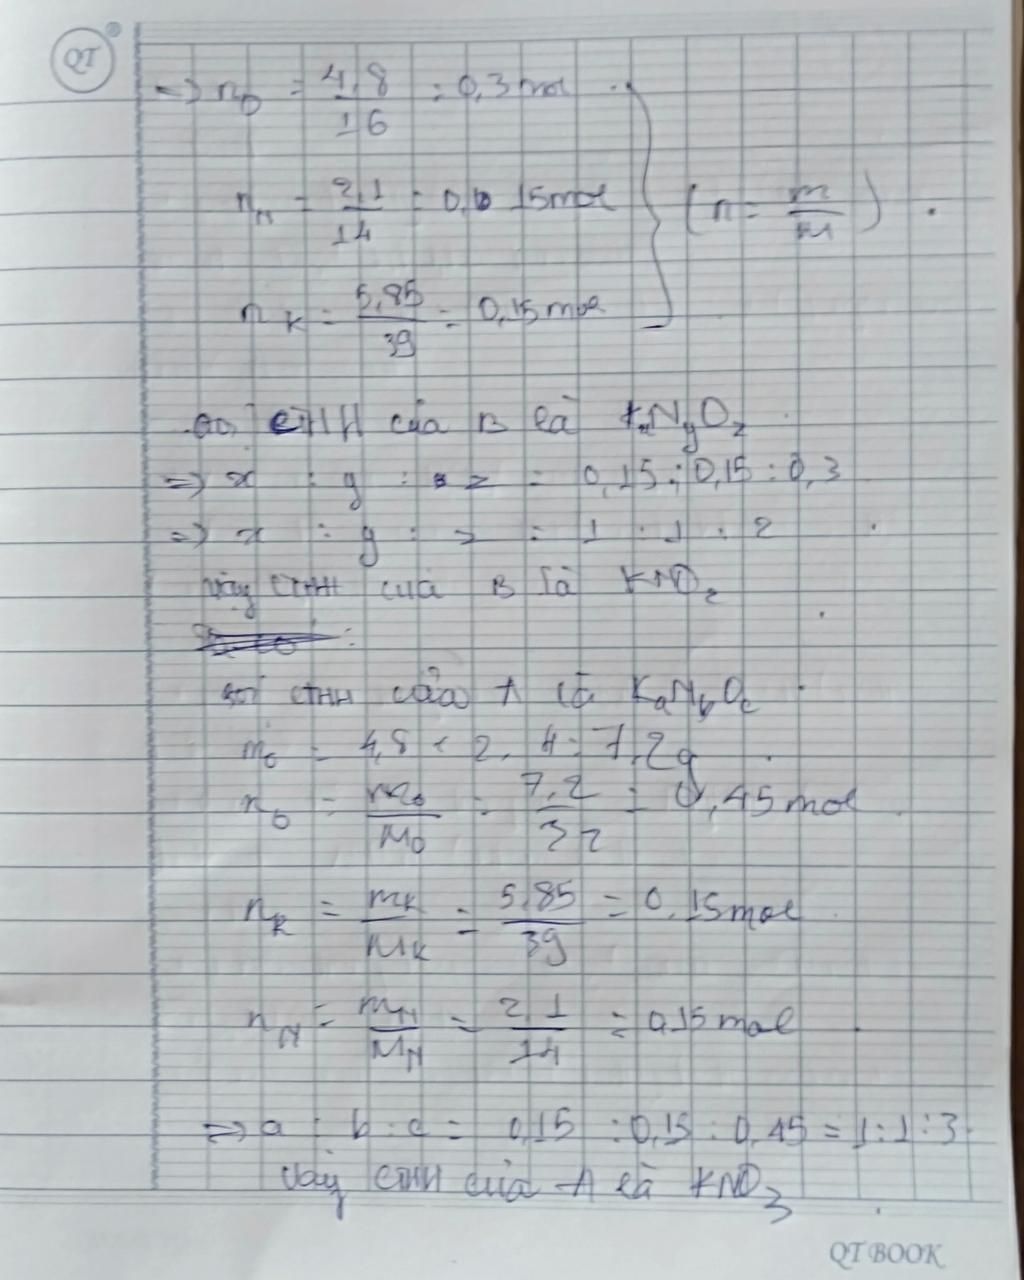 QT
=> nO = 4,8 / 16 = 0,3 mol
nN = 2,1 / 14 = 0,15 mol (n = m / M)
nK = 5,85 / 39 = 0,15 mol
CTHH của B là KxNyOz
=> x : y : z = 0,15 : 0,15 : 0,3
=> x : y : z = 1 : 1 : 2
Vậy CTHH của B là KNO2
CTHH của A là KaNbOc
mO = 4,8 + 2,4 = 7,2g
nO = mO / MO = 7,2 / 32 = 0,45 mol
nK = mK / MK = 5,85 / 39 = 0,15 mol
nN = mN / MN = 2,1 / 14 = 0,15 mol
=> a : b : c = 0,15 : 0,15 : 0,45 = 1 : 1 : 3
Vậy CTHH của A là KNO3
QT BOOK